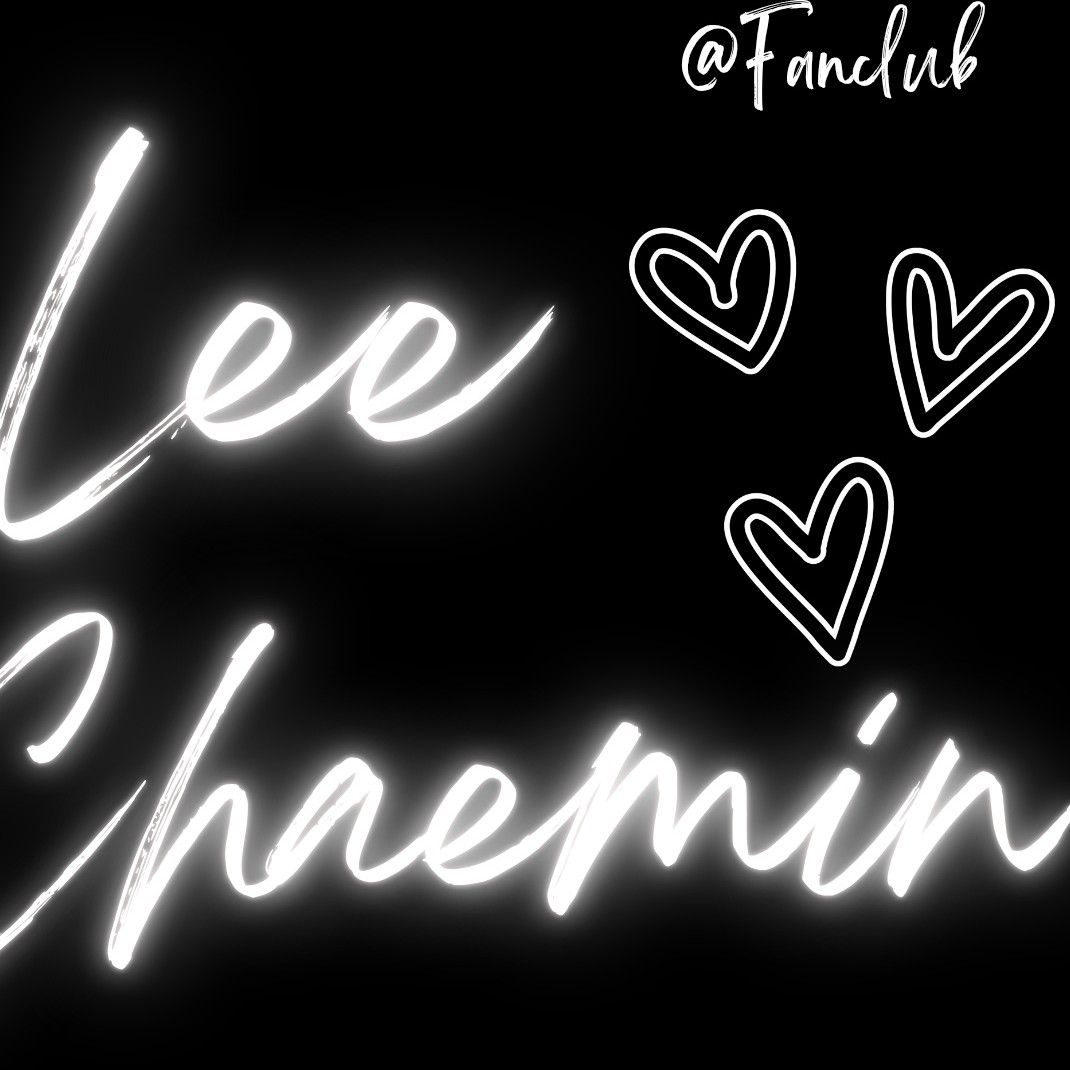 @Fanclub
Lee
Chaemin